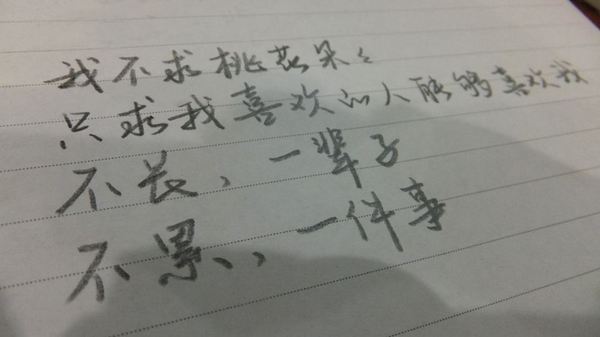 我不求桃花朵朵
只求我喜欢的人能够喜欢我
不长，一辈子
不累，一件事